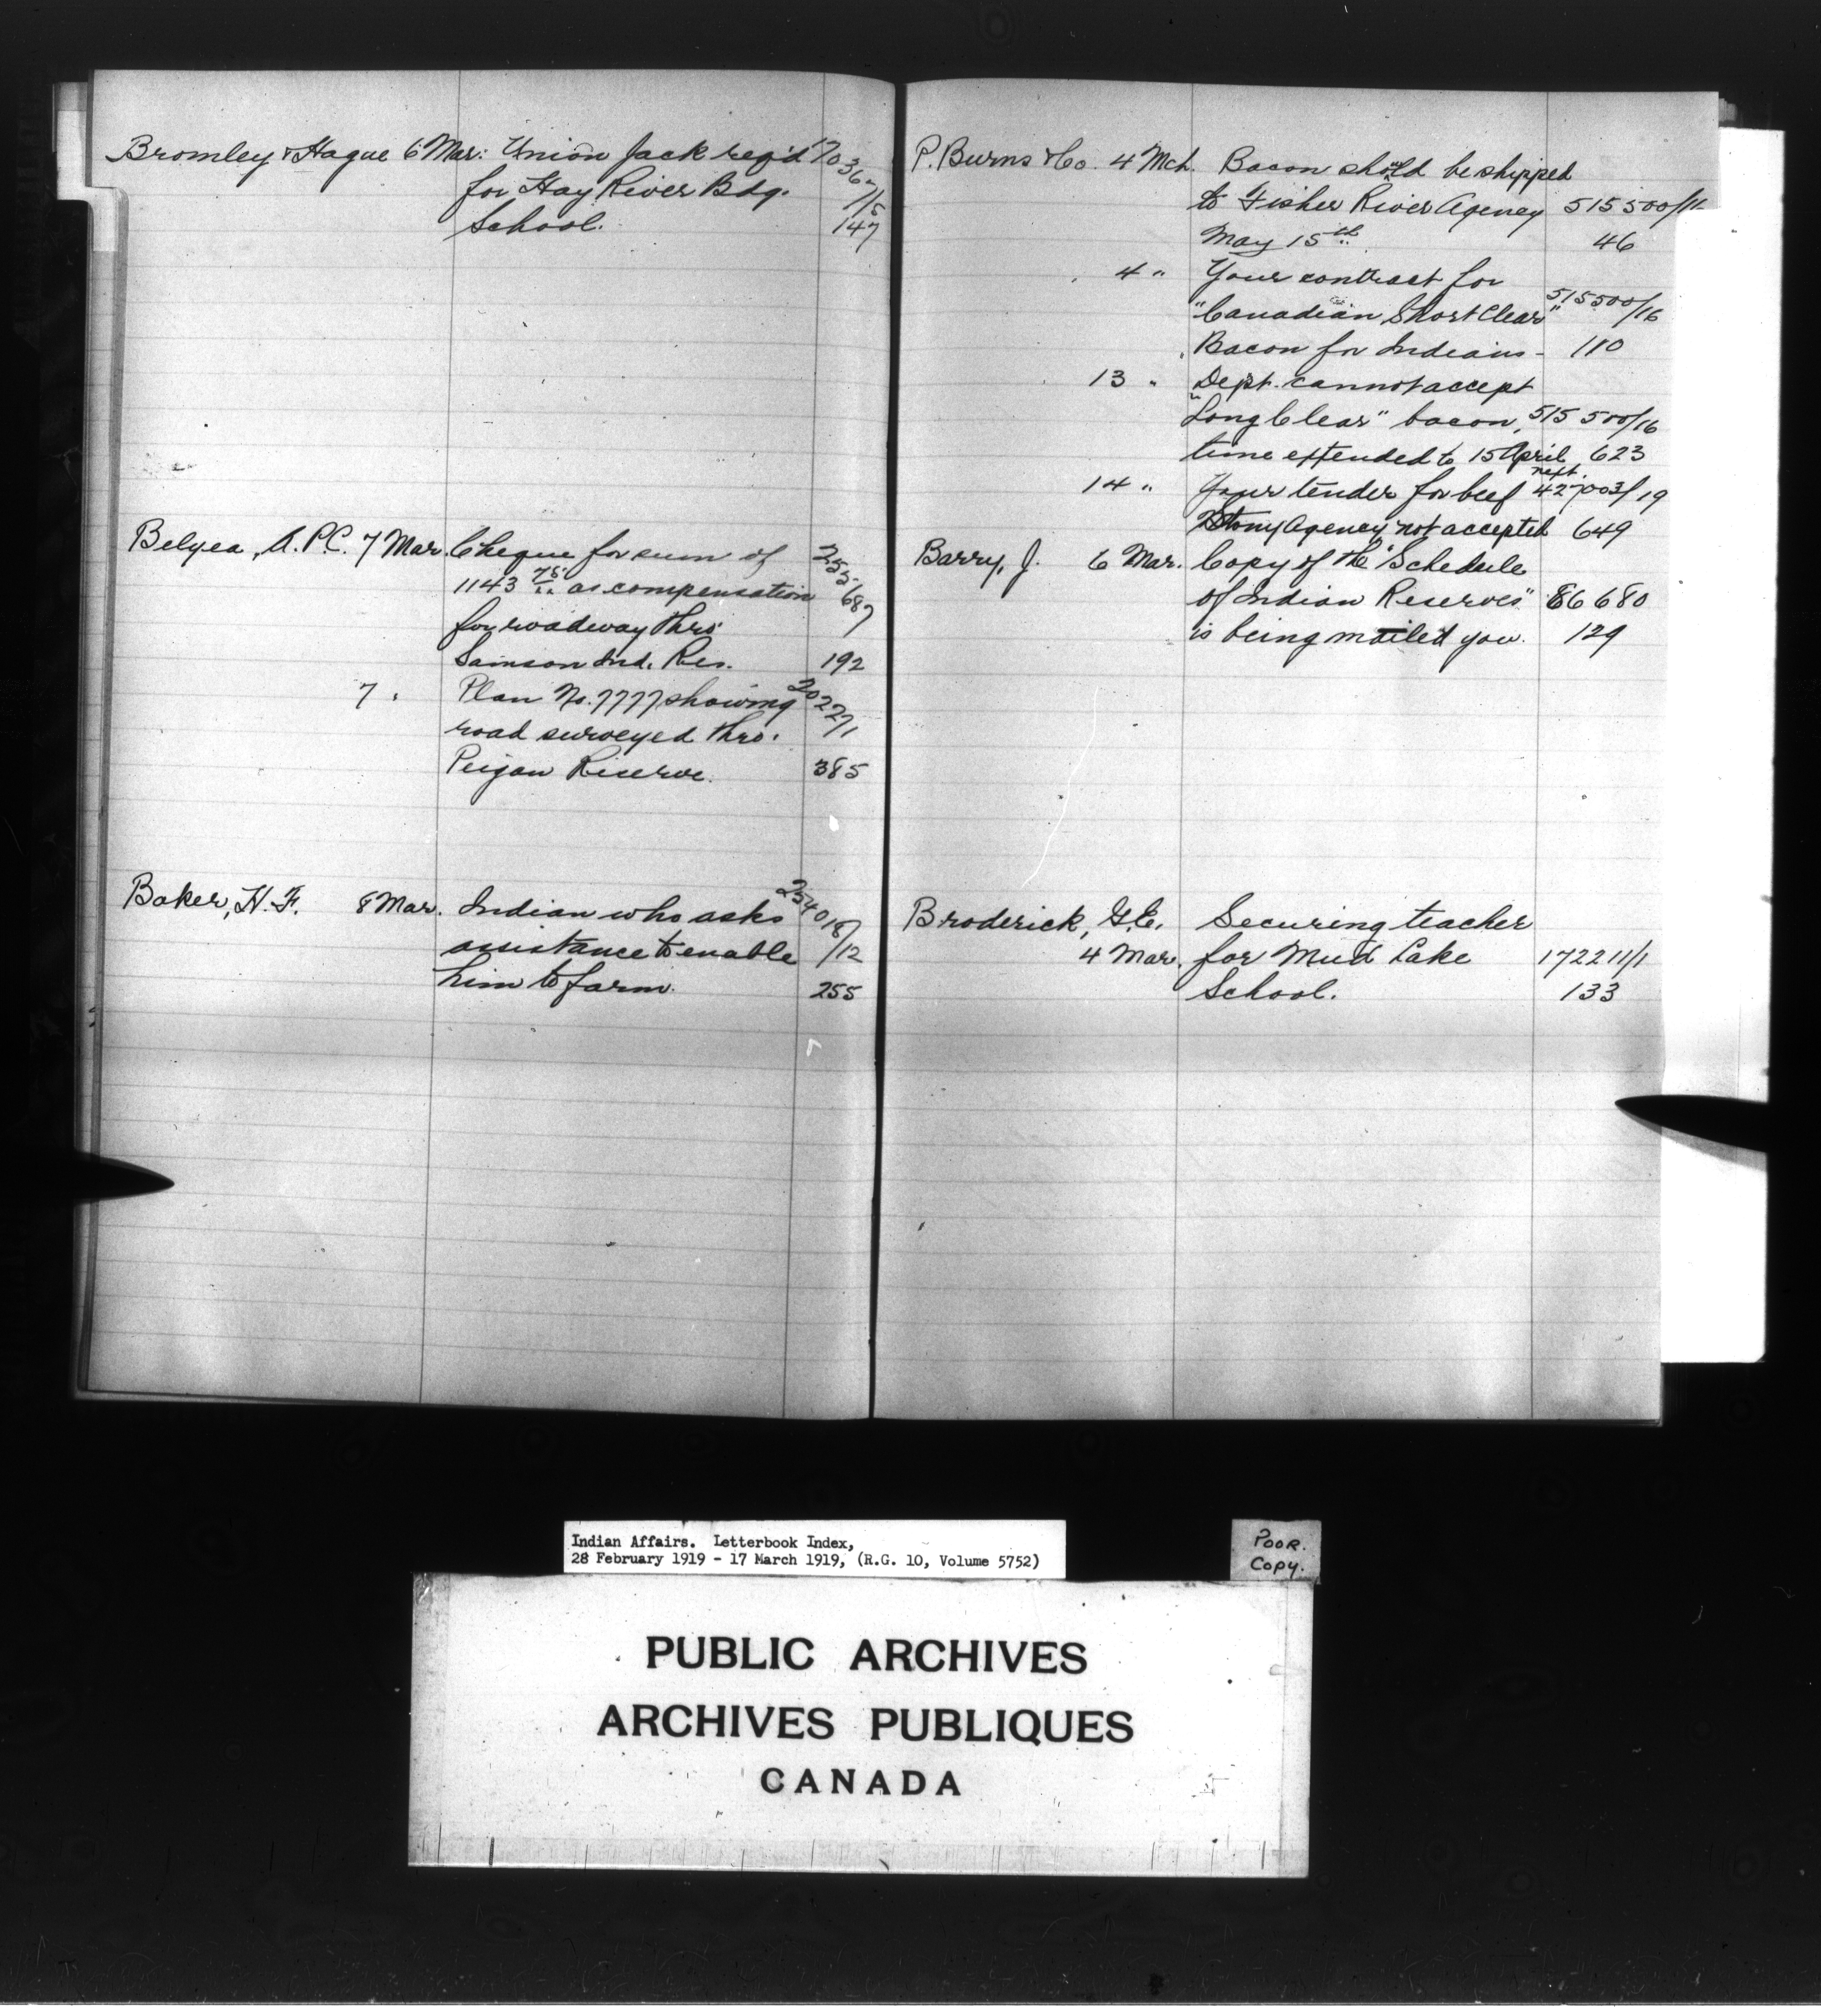 Bromley & Hague 6 Mar: Union Jack req'd 70367/5
for Hay River Bdg.
School. 147
Belyea, A.P.C. 7 Mar. Cheque for sum of 255687
1143 75 as compensation
for roadway thro'
Samson Ind. Res. 192
7 " Plan No. 7777 showing 20227/1
road surveyed thro'
Peigan Reserve. 385
Baker, H. F. 8 Mar. Indian who asks 254018/12
assistance to enable
him to farm. 255
P. Burns & Co. 4 Mch. Bacon should be shipped
to Fisher River Agency 515500/16
May 15th 46
4 " Your contract for
"Canadian Short Clear" 515500/16
Bacon for Indians - 110
13 " Dept. cannot accept
"Long Clear" bacon, 515500/16
time extended to 15 April next. 623
14 " Your tender for beef 427003/19
Stony Agency not accepted 649
Barry, J. 6 Mar. Copy of the "Schedule
of Indian Reserves" 86680
is being mailed you. 129
Broderick, G.E. Securing teacher
4 Mar. for Mud Lake 172211/1
School. 133
Indian Affairs. Letterbook Index,
28 February 1919 - 17 March 1919, (R.G. 10, Volume 5752)
POOR.
COPY.
PUBLIC ARCHIVES
ARCHIVES PUBLIQUES
CANADA